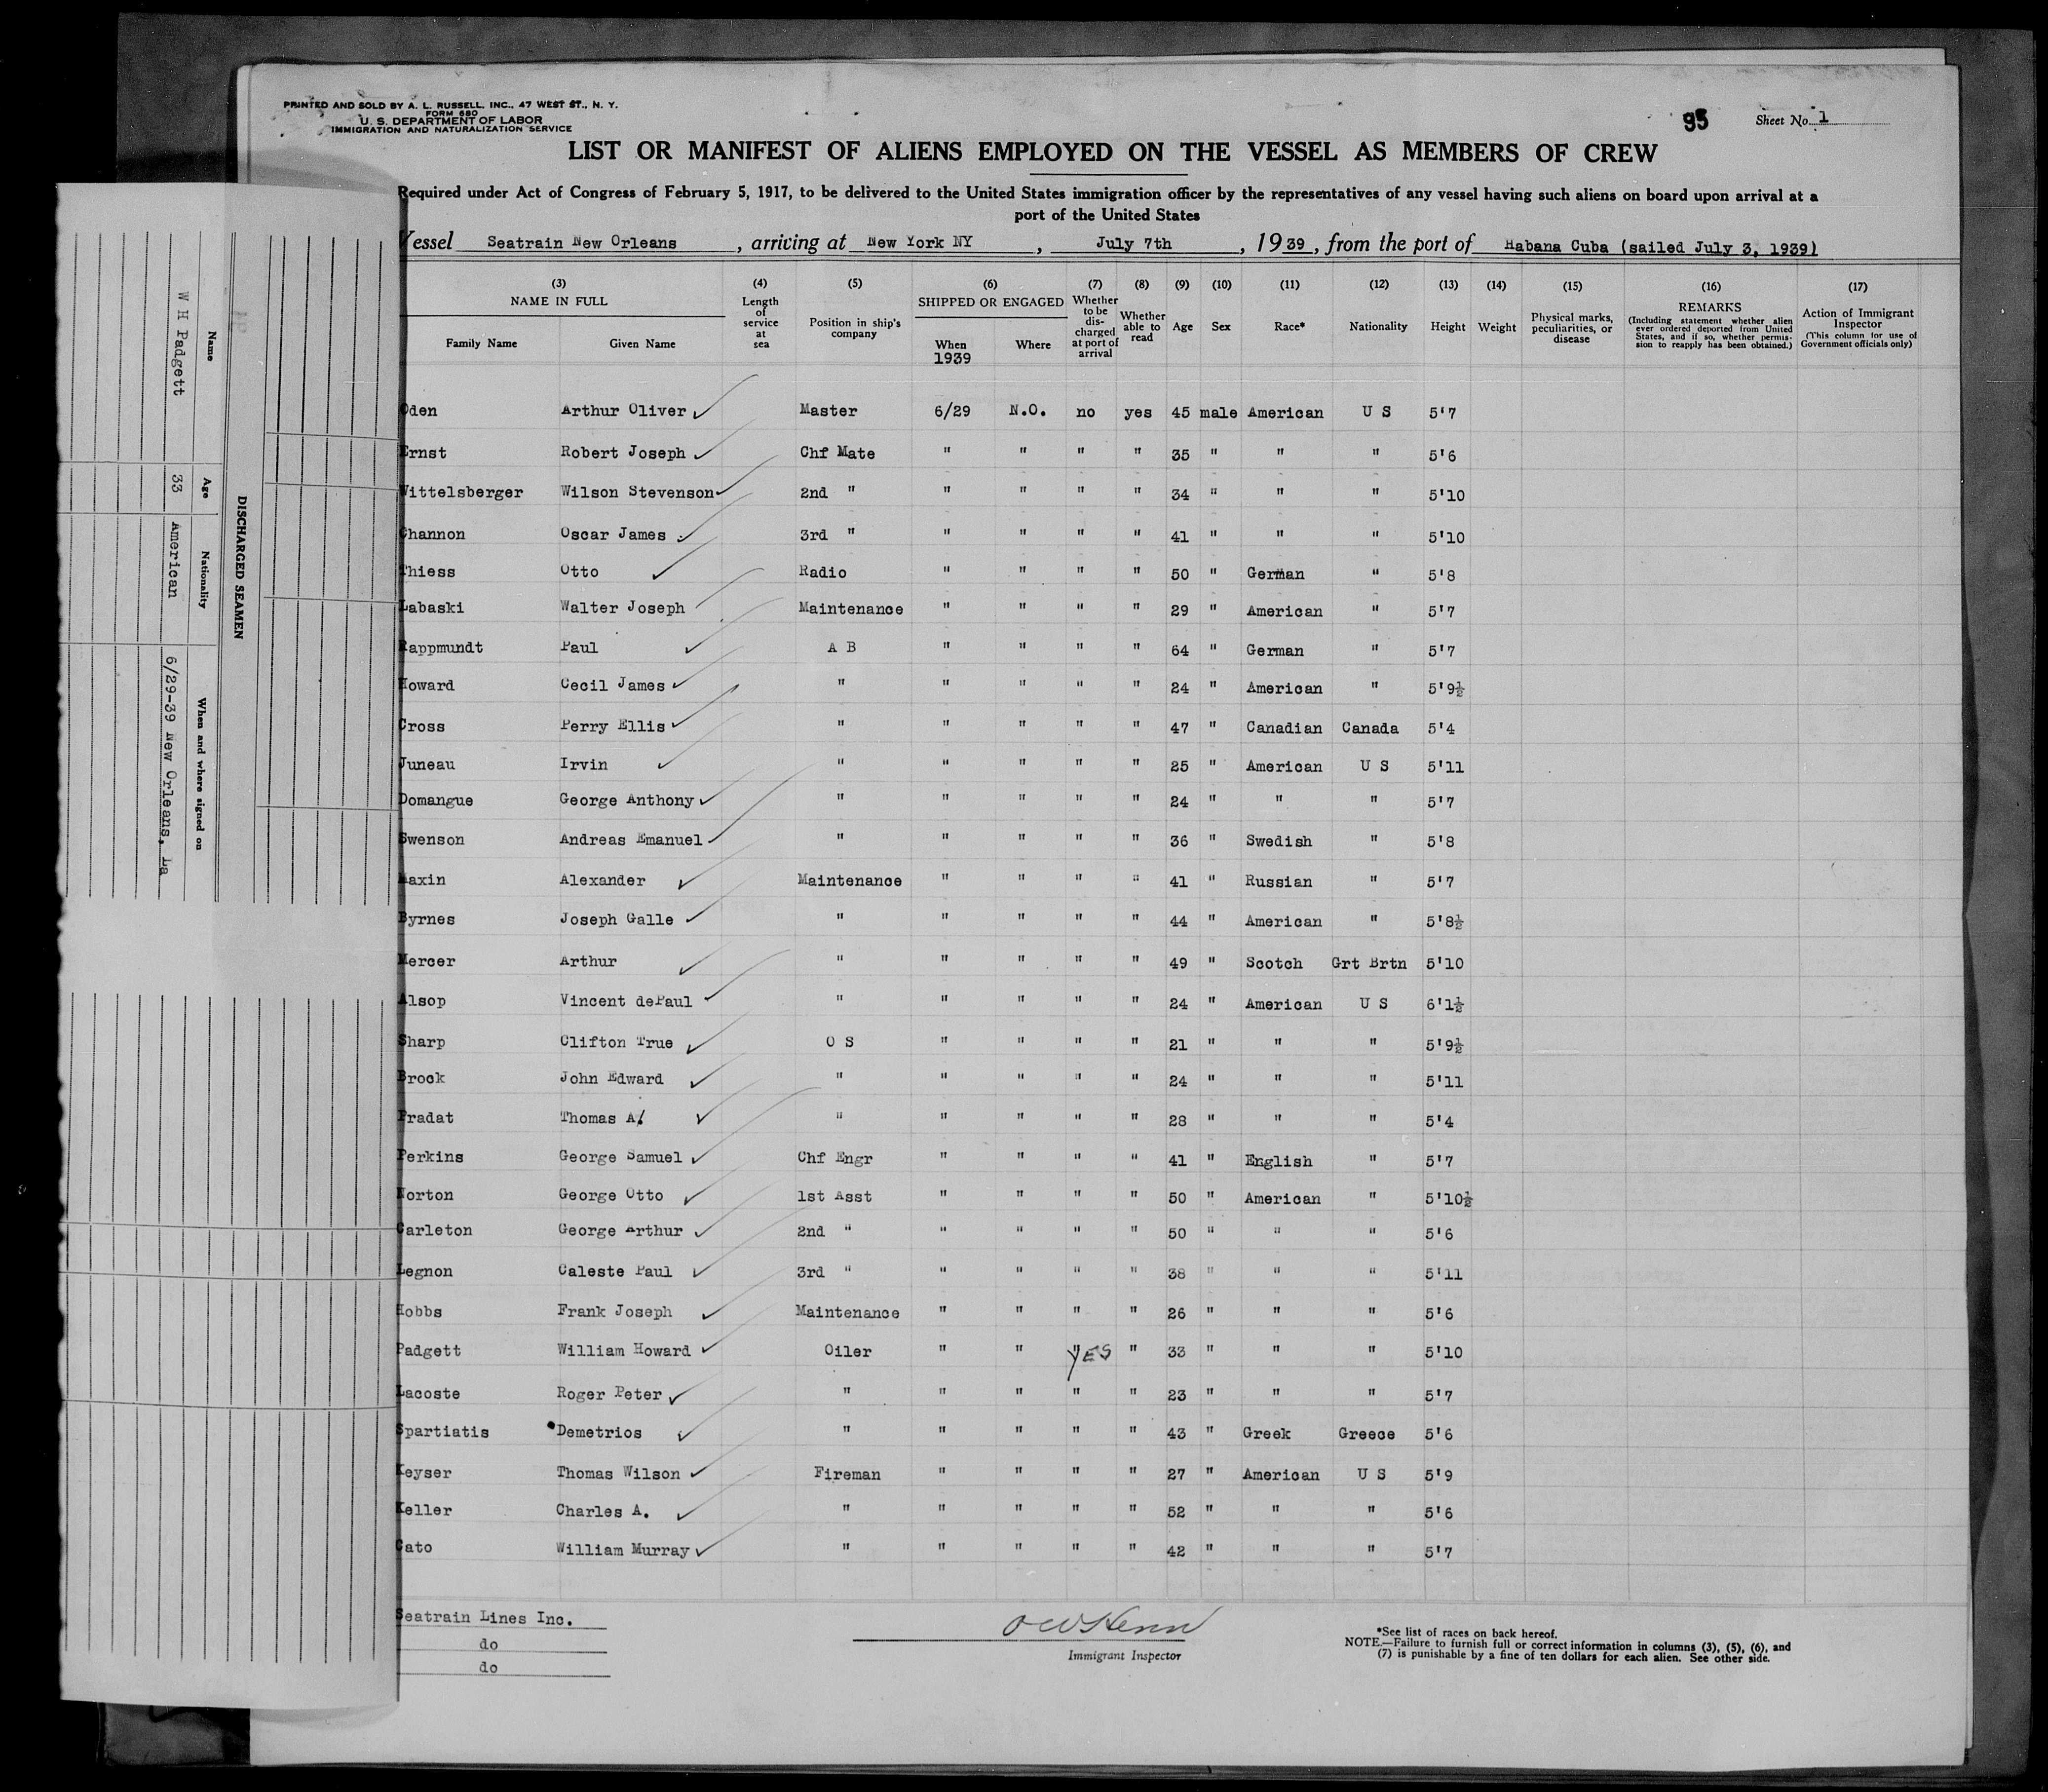 PRINTED AND SOLD BY A. L. RUSSELL, INC., 47 WEST ST., N. Y.
FORM 680
U. S. DEPARTMENT OF LABOR
IMMIGRATION AND NATURALIZATION SERVICE
95
Sheet No. 1
LIST OR MANIFEST OF ALIENS EMPLOYED ON THE VESSEL AS MEMBERS OF CREW
Required under Act of Congress of February 5, 1917, to be delivered to the United States immigration officer by the representatives of any vessel having such aliens on board upon arrival at a
port of the United States
Vessel Seatrain New Orleans, arriving at New York NY, July 7th, 1939, from the port of Habana Cuba (sailed July 3, 1939)
(3) NAME IN FULL Family Name Given Name
(4) Length of service at sea
(5) Position in ship's company
(6) SHIPPED OR ENGAGED When 1939 Where
(7) Whether to be discharged at port of arrival
(8) Whether able to read
(9) Age
(10) Sex
(11) Race*
(12) Nationality
(13) Height
(14) Weight
(15) Physical marks, peculiarities, or disease
(16) REMARKS (Including statement whether alien ever ordered deported from United States, and if so, whether permission to reapply has been obtained.)
(17) Action of Immigrant Inspector (This column for use of Government officials only)
Oden Arthur Oliver Master 6/29 N.O. no yes 45 male American U S 5'7
Ernst Robert Joseph Chf Mate " " " " 35 " " " 5'6
Wittelsberger Wilson Stevenson 2nd " " " " " 34 " " " 5'10
Channon Oscar James 3rd " " " " " 41 " " " 5'10
Thiess Otto Radio " " " " 50 " German " 5'8
Labaski Walter Joseph Maintenance " " " " 29 " American " 5'7
Rappmundt Paul A B " " " " 64 " German " 5'7
Howard Cecil James " " " " " 24 " American " 5'9½
Cross Perry Ellis " " " " " 47 " Canadian Canada 5'4
Juneau Irvin " " " " " 25 " American U S 5'11
Domangue George Anthony " " " " " 24 " " " 5'7
Swenson Andreas Emanuel " " " " " 36 " Swedish " 5'8
Maxin Alexander Maintenance " " " " 41 " Russian " 5'7
Byrnes Joseph Galle " " " " " 44 " American " 5'8½
Mercer Arthur " " " " " 49 " Scotch Grt Brtn 5'10
Alsop Vincent dePaul " " " " " 24 " American U S 6'1½
Sharp Clifton True O S " " " " 21 " " " 5'9½
Brock John Edward " " " " " 24 " " " 5'11
Pradat Thomas A. " " " " " 28 " " " 5'4
Perkins George Samuel Chf Engr " " " " 41 " English " 5'7
Norton George Otto 1st Asst " " " " 50 " American " 5'10½
Carleton George Arthur 2nd " " " " " 50 " " " 5'6
Legnon Caleste Paul 3rd " " " " " 38 " " " 5'11
Hobbs Frank Joseph Maintenance " " " " 26 " " " 5'6
Padgett William Howard Oiler " " YES " 33 " " " 5'10
Lacoste Roger Peter " " " " " 23 " " " 5'7
Spartiatis Demetrios " " " " " 43 " Greek Greece 5'6
Keyser Thomas Wilson Fireman " " " " 27 " American U S 5'9
Keller Charles A. " " " " " 52 " " " 5'6
Cato William Murray " " " " " 42 " " " 5'7
Seatrain Lines Inc.
do
do
Immigrant Inspector
*See list of races on back hereof.
NOTE.—Failure to furnish full or correct information in columns (3), (5), (6), and
(7) is punishable by a fine of ten dollars for each alien. See other side.
DISCHARGED SEAMEN
Name Age Nationality When and where signed on
W H Padgett 33 American 6/29-39 New Orleans, La